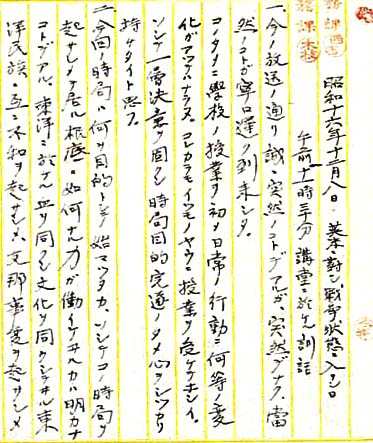 昭和十六年十二月八日 英米ニ対シ戦争状態ニ入ルノ日
午前十一時三十分 講堂ニ於ケル訓話
一、今ノ放送ノ通リ誠ニ突然ノコトデアルガ、突然デナク、当
然ノコトガ寧ロ遅ク到来シタ。
コノタメニ学校ノ授業ヲ初メ日常ノ行動ニ何等ノ変
化ガアツテハナラヌ。コレカラモイツモノヤウニ授業ヲ受ケテホシイ。
ソシテ一層決意ヲ固メ時局目的完遂ノタメ心ヲシツカリ
持ツテタイト思フ。
二、今回ノ時局ハ何ヲ目的トシテ始マツタカ、ソシテコノ時局ヲ
起サシメテ居ル根底ニ如何ナル力ガ働イテヰルカハ明カナ
コトデアル。東洋ニ於ケル血ヲ同クシ文化ヲ同クシテヰル東
洋民族ニ互ニ不和ヲ起サシメ、支那事変ヲ起サシメ